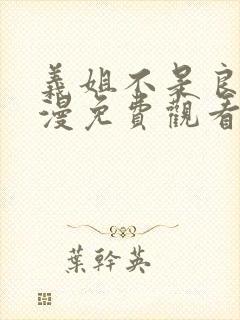 義姐不是良
漫免費觀看
葉幹英